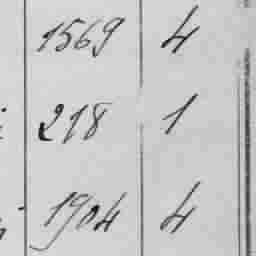 1569 4
218 1
1904 4